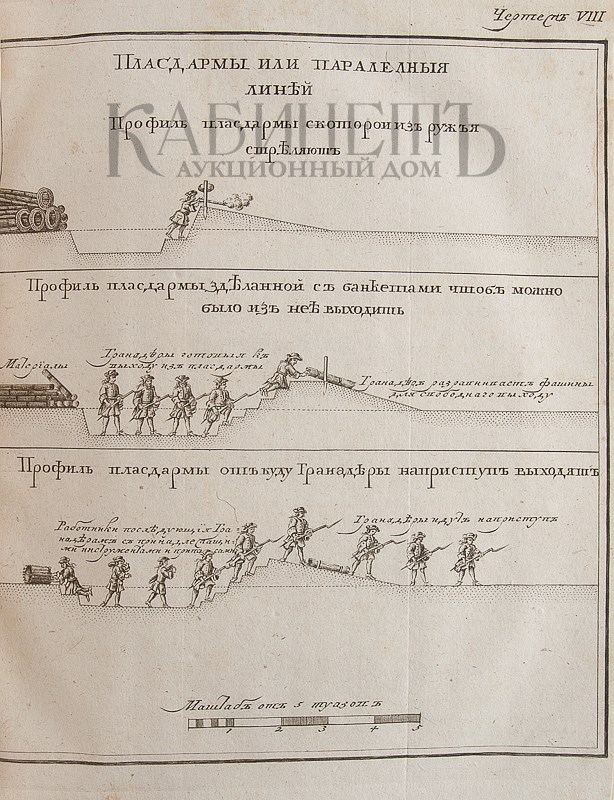 Чертежъ VIII
Пласдармы или паралелныя
линѣй
КАБИНЕТЪ
Профиль пласдармы скоторои изъ ружъя
АУКЦИОННЫЙ ДОМ
стрѣляютъ
Профиль пласдармы здѣланной съ банкетами чтобъ можно
было изъ неѣ выходить
Матерїалы
Гранадѣры готовыя къ
выходу изъ пласдармы
Гранадѣръ разравниваетъ фашины
для свободнаго выходу
Профиль пласдармы отъ куду Гранадѣры наприступъ выходятъ
Работники послѣдующїя Гра
надѣрамъ съ принадлежащи
ми инструментами и припасами
Гранадѣры идутъ наприступъ
Маштабъ отъ 5 туазовъ
1 2 3 4 5